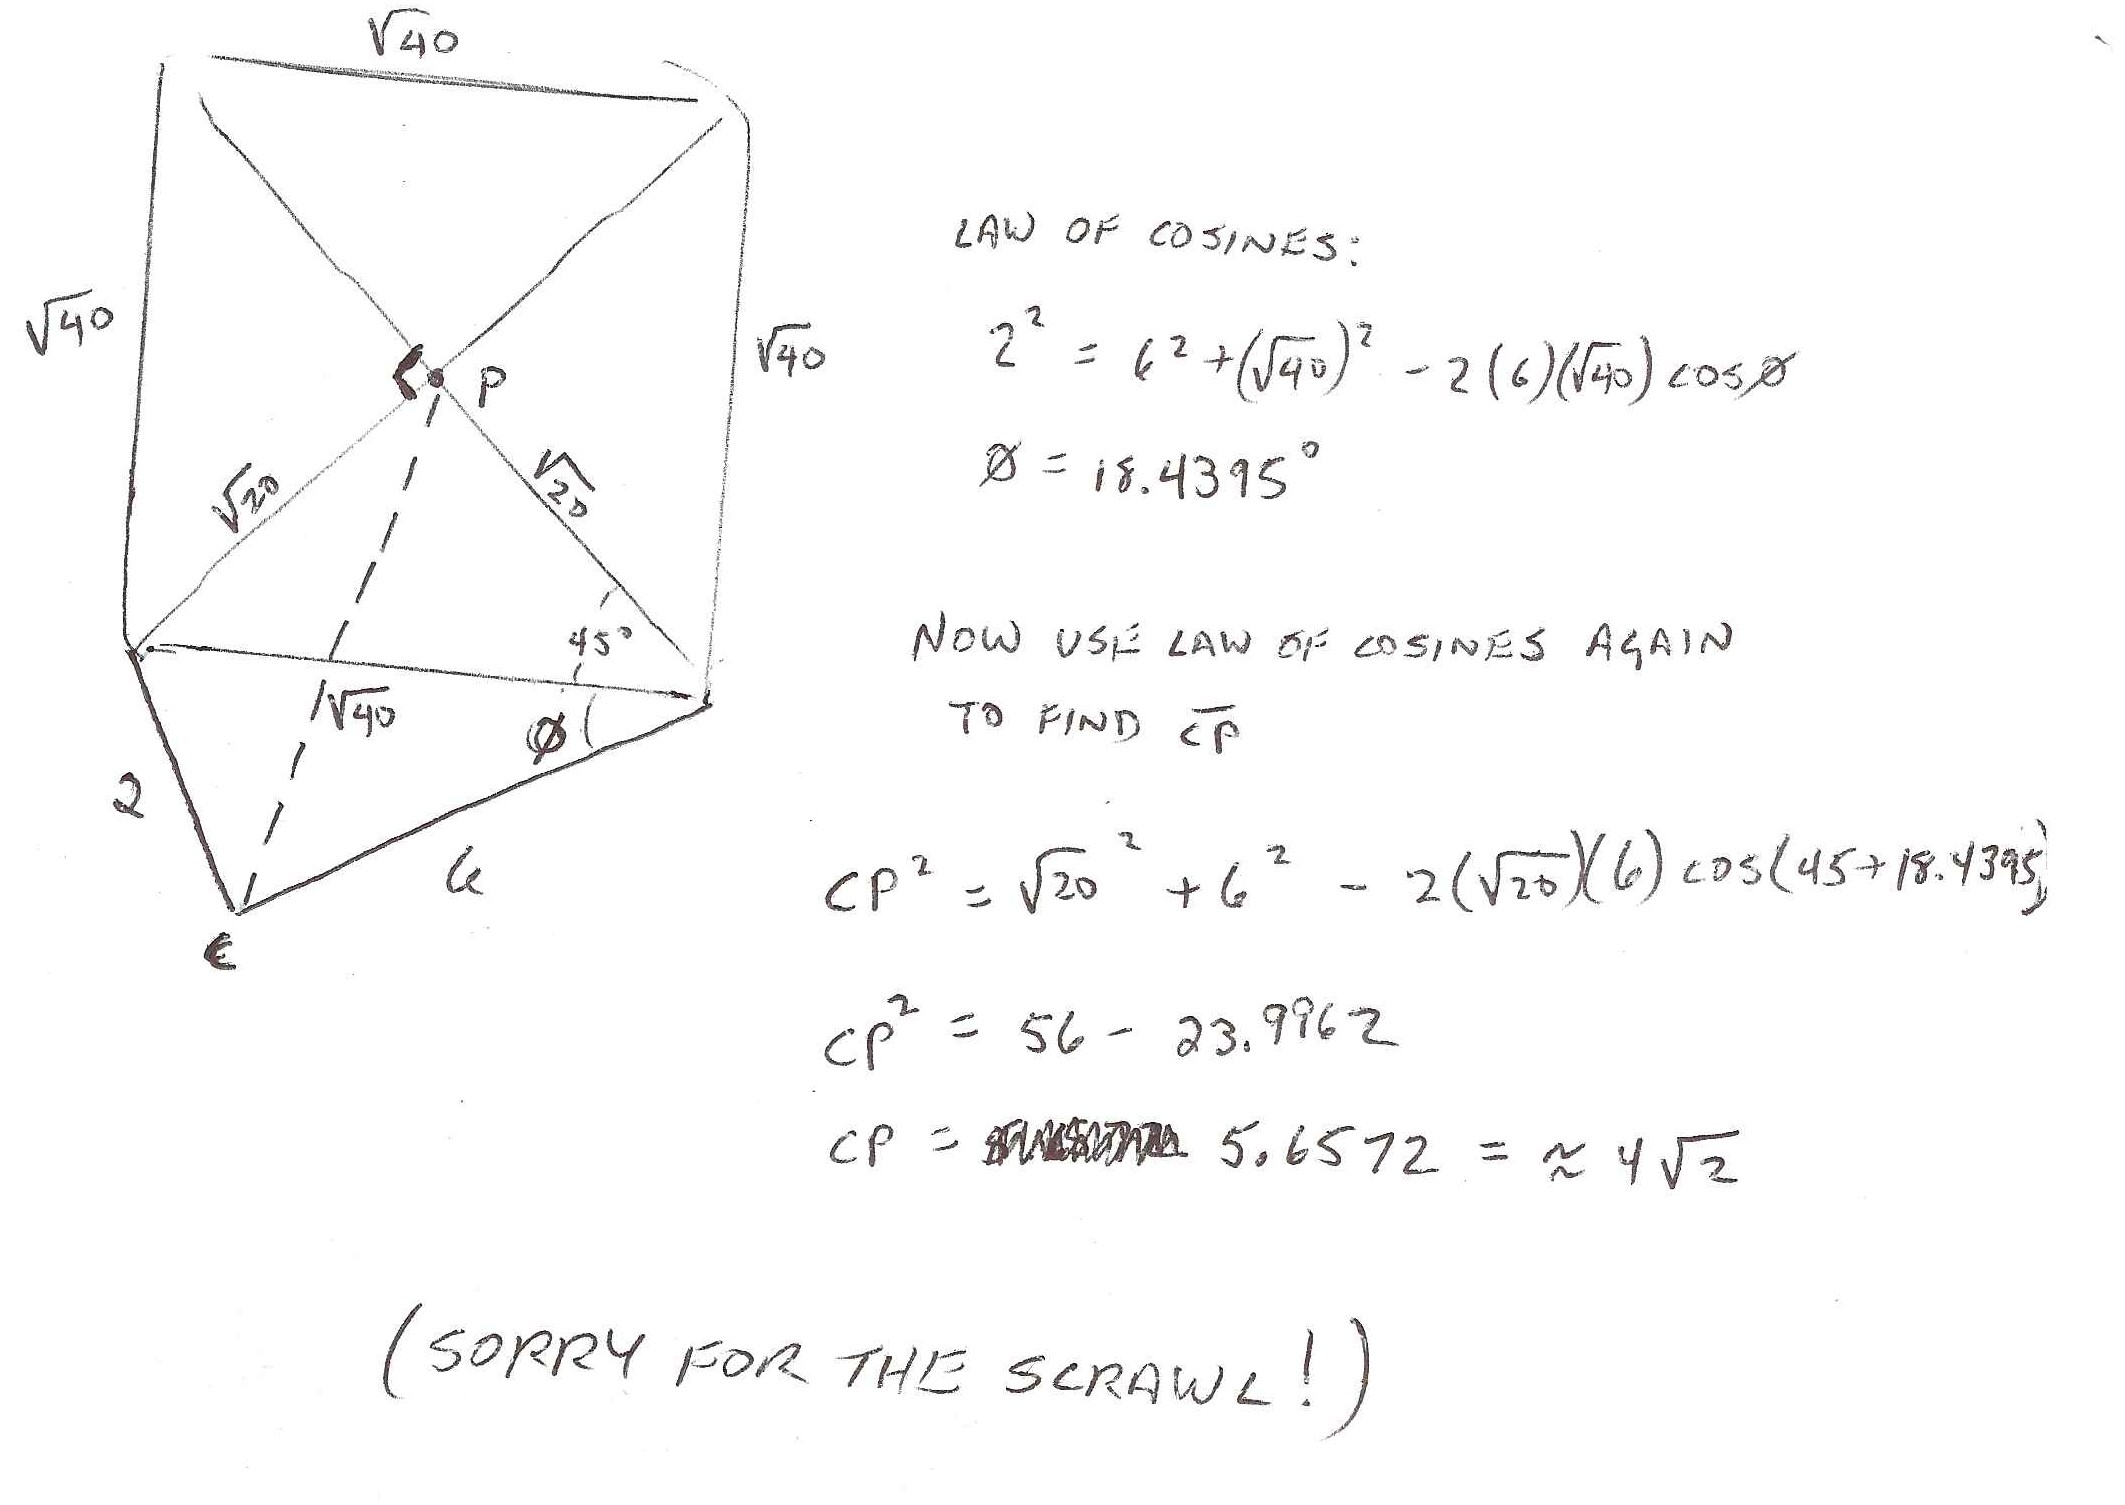 √40
√40
√40
P
√20
√20
45°
√40
ø
2
6
C
LAW OF COSINES:
2² = 6² + (√40)² - 2(6)(√40) cosø
ø = 18.4395°
NOW USE LAW OF COSINES AGAIN
TO FIND C̅P̅
CP² = √20² + 6² - 2(√20)(6) cos(45+18.4395)
CP² = 56 - 23.9962
CP = 5.6572 = ≈ 4√2
(SORRY FOR THE SCRAWL!)